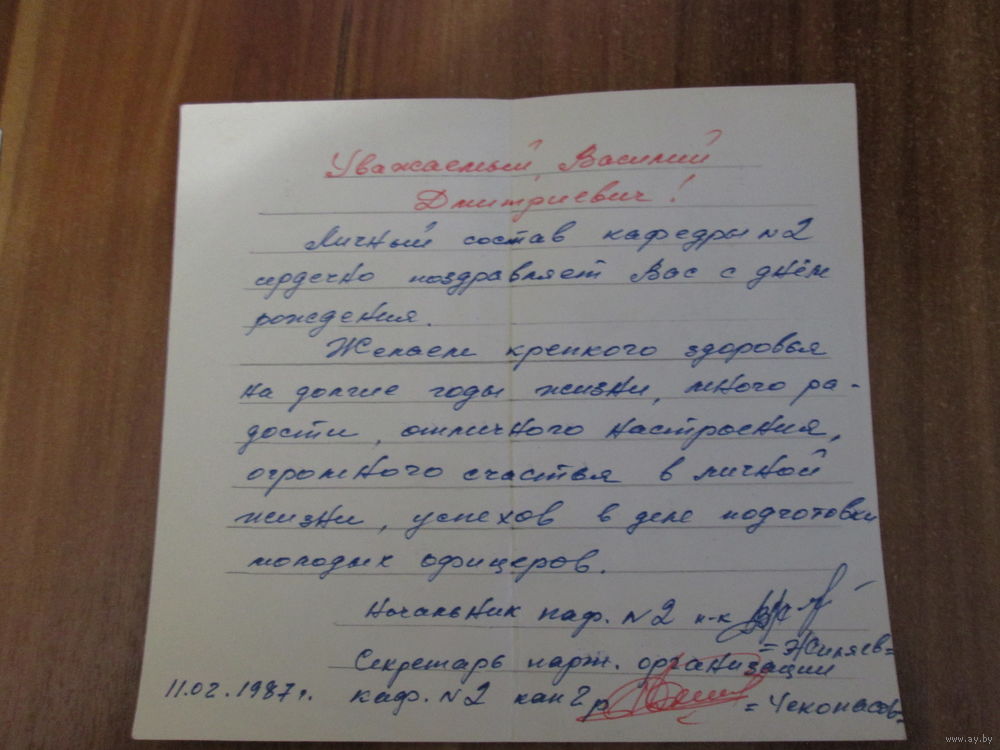 Уважаемый Василий
Дмитриевич!
Личный состав кафедры №2
сердечно поздравляет Вас с днём
рождения.
Желаем крепкого здоровья
на долгие годы жизни, много ра-
дости, отличного настроения,
огромного счастья в личной
жизни, успехов в деле подготовки
молодых офицеров.
Начальник каф. №2 п-к
=Жиляев=
Секретарь парт. организации
11.02.1987г. каф. №2 кап 2 р
www.ay.by